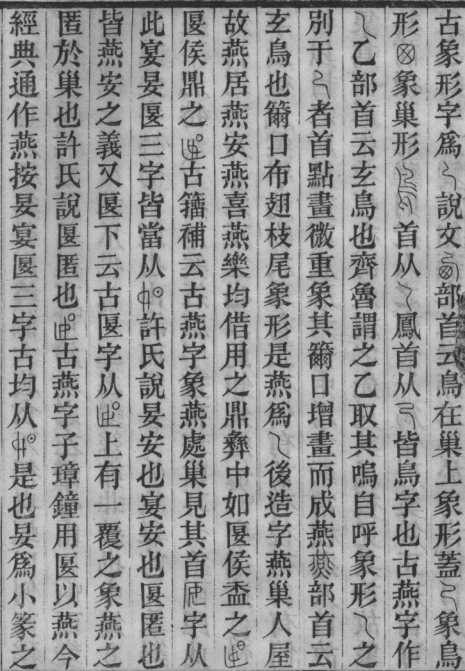 古象形字爲說文部首云鳥在巢上象形蓋象鳥
形象巢形首从鳳首从皆鳥字也古燕字作
乙部首云玄鳥也齊魯謂之乙取其鳴自呼象形之
別于者首點畫微重象其籋口增畫而成燕部首云
玄鳥也籋口布翅枝尾象形是燕爲後造字燕巢人屋
故燕居燕安燕喜燕樂均借用之鼎彝中如匽侯盉之
匽侯鼎之古籀補云古燕字象燕處巢見其首字从
此宴晏匽三字皆當从許氏說晏安也宴安也匽匿也
皆燕安之義又匽下云古匽字从上有一覆之象燕之
匿於巢也許氏說匽匿也古燕字子璋鐘用匽以燕今
經典通作燕按晏宴匽三字古均从是也晏爲小篆之